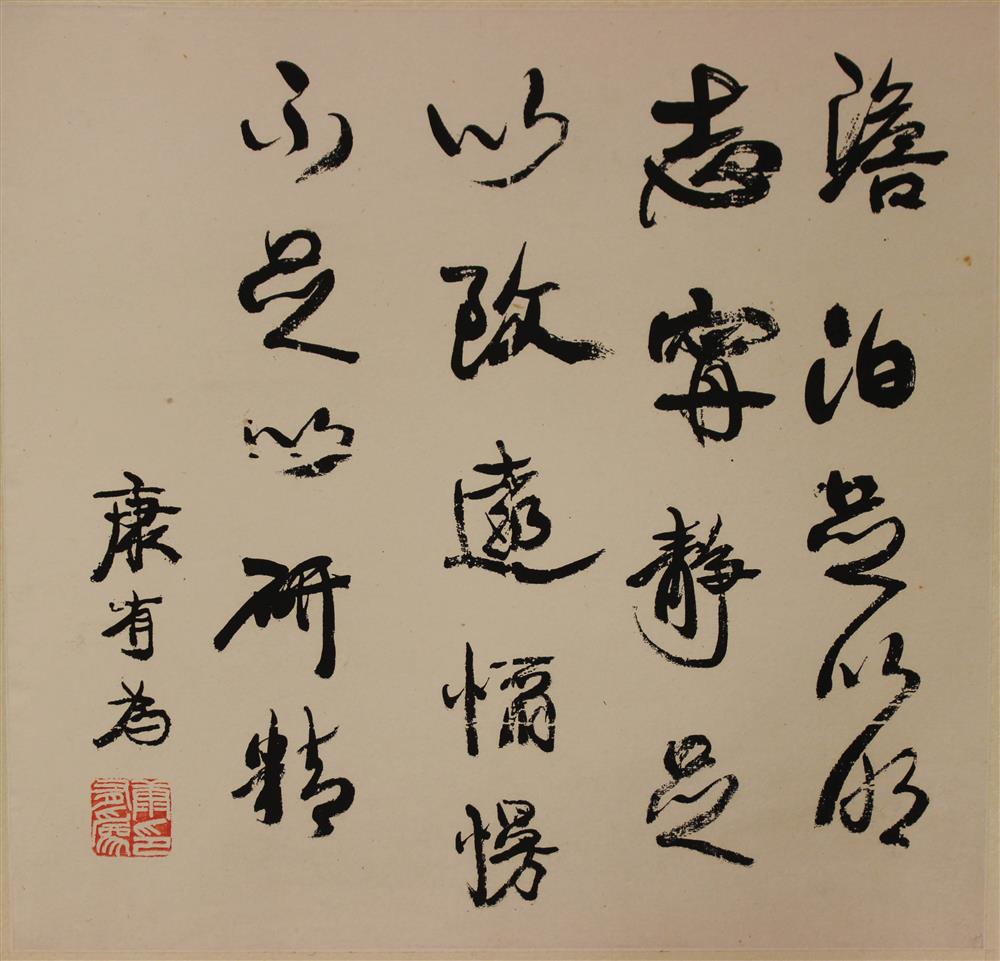 澹泊足以明
志甯靜足
以致遠慢
不足以研精
康有為
康印有為